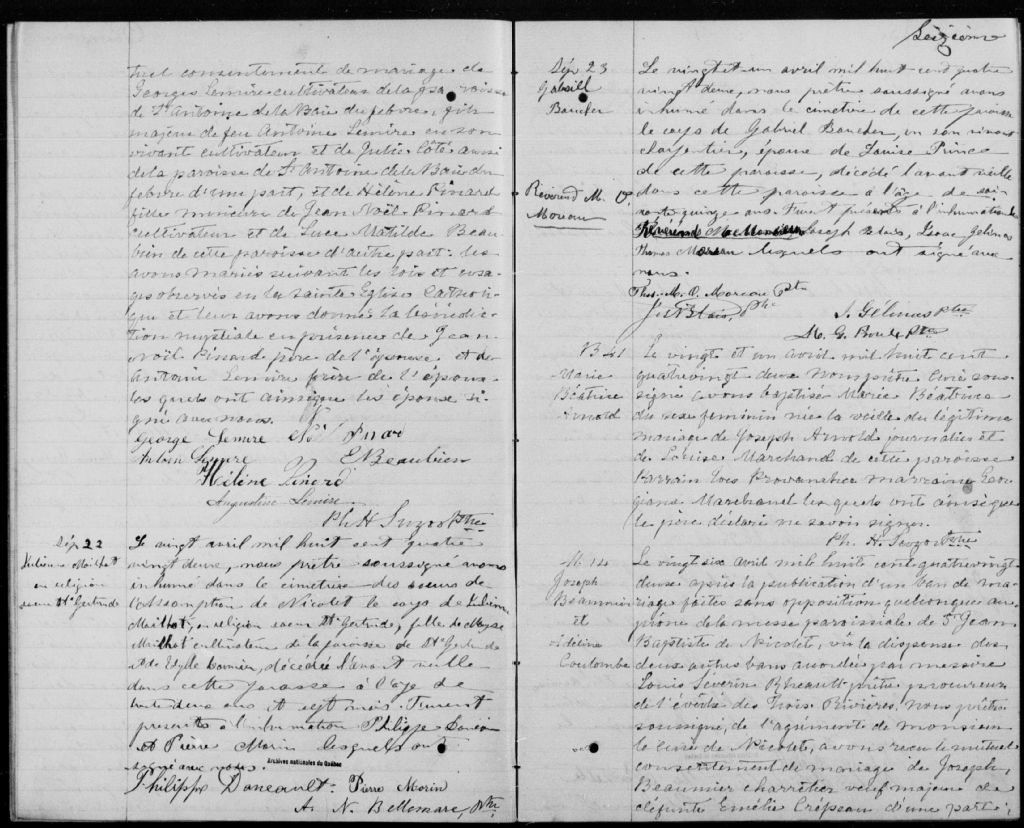 tuel consentement de mariage de
Georges Lemire cultivateur de la paroisse
de St Antoine de la Baie du febvre, fils
majeur de feu Antoine Lemire en son
vivant cultivateur et de Julie Côté aussi
de la paroisse de St Antoine de la Baie du
febvre d'une part, et de Hélène Pinard
fille mineure de Jean Noël Pinard
cultivateur et de Luce Matilde Beau
bien de cette paroisse d'autre part. les
avons mariés suivant les lois et usa
ges observés en la sainte Eglise Catholi
que et leur avons donné la bénédic
tion nuptiale en présence de Jean
noël Pinard père de l'épouse et de
Antoine Lemire frère de l'époux
les quels ont ainsique les épouse si
gné avec nous.
George Lemire Noël Pinard
Lemire E Beaubien
Hélène Pinard
Augustine Lemire
Ph H Suzor Ptre
Sép 22
Mailhot
en religion
soeur Ste Gertrude
Le vingt avril mil huit cent quatre
vingt deux, nous prêtre soussigné avons
inhumé dans le cimetière des soeurs de
l'Assomption de Nicolet le corps de
Mailhot, en religion soeur Ste Gertrude, fille de Moyse
Mailhot cultivateur de la paroisse de Ste Gertrude
et de décédée l'avant veille
dans cette paroisse à l'âge de
deux ans et sept mois Furent
présents à l'inhumation Philippe
et Pierre Morin lesquels ont
signé avec nous.
Archives nationales du Québec
Philippe Daneault Pierre Morin
A. N. Bellemare, Ptre
Seizième
Sép 23
Gabriel
Boucher
Le vingt et un avril mil huit cent quatre
vingt deux, nous prêtre soussigné avons
inhumé dans le cimetière de cette paroisse
le corps de Gabriel Boucher, en son vivant
charpentier, époux de Louise Prince
de cette paroisse, décédé l'avant veille
dans cette paroisse à l'âge de soix
ante quinze ans Furent présents à l'inhumation le
Révérend M. O.
Moreau
Joseph Blais, Isaac Gélinas
Thomas Moreau lesquels ont signé avec
nous.
M. O. Moreau Ptre
Blais, Ptre
I. Gélinas ptre
M. G. Ptre
B 41
Marie
Béatrice
Arnold
Le vingt et un avril mil huit cent
quatrevingt deux Nous prêtre curé sous
signé avons baptisé Marie Béatrice
du sexe feminin née la veille du légitime
mariage de Joseph Arnold journalier et
de Louise Marchand de cette paroisse
Parrain Provancher marraine Geor
giana Marchand les quels ont ainsi que
le père déclaré ne savoir signer.
Ph. H. Suzor Ptre
M 14
Joseph
Beaumier
et
Adéline
Coulombe
Le vingt six avril mil huit cent quatrevingt
deux après la publication d'un ban de ma
riage faites sans opposition quelconque au
prône de la messe paroissiale de St Jean
Baptiste de Nicolet, vu la dispense des
deux autres bans accordée par messire
Louis Séverin Rheault prêtre procureur
de l'évêché des Trois Rivières, nous prêtre
soussigné, de l'agrément de monsieur
le curé de Nicolet, avons recu le mutuel
consentement de mariage de Joseph
Beaumier charretier veuf majeur de
défunte Emélie Crépeau d'une part;